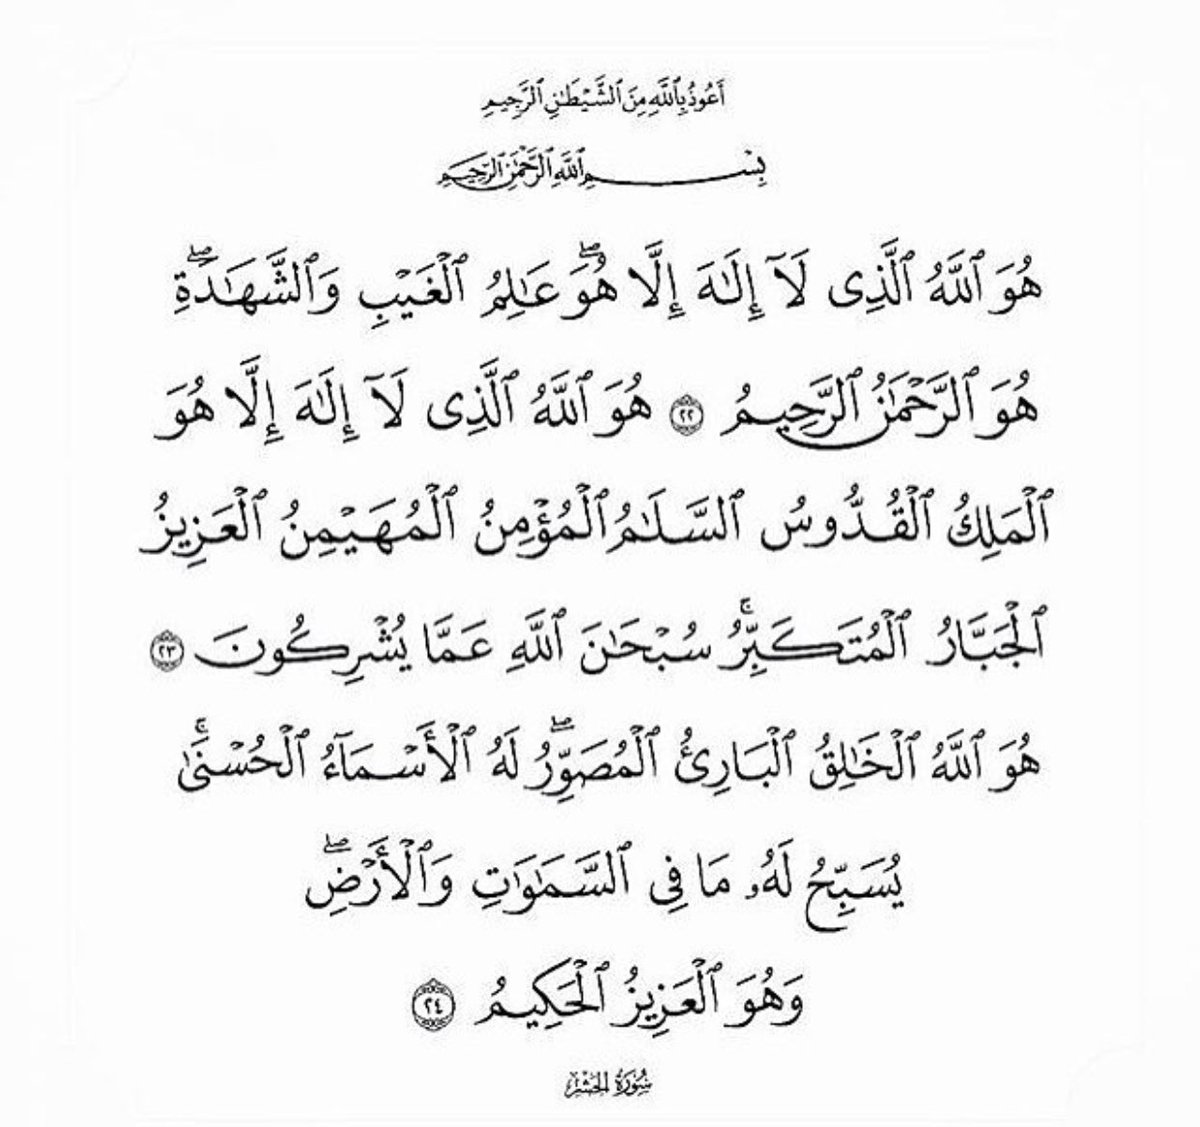 أَعُوذُ بِٱللَّهِ مِنَ ٱلشَّيْطَٰنِ ٱلرَّجِيمِ
بِسْمِ ٱللَّهِ ٱلرَّحْمَٰنِ ٱلرَّحِيمِ
هُوَ ٱللَّهُ ٱلَّذِى لَآ إِلَٰهَ إِلَّا هُوَ ۖ عَٰلِمُ ٱلْغَيْبِ وَٱلشَّهَٰدَةِ ۖ
هُوَ ٱلرَّحْمَٰنُ ٱلرَّحِيمُ ٢٢ هُوَ ٱللَّهُ ٱلَّذِى لَآ إِلَٰهَ إِلَّا هُوَ
ٱلْمَلِكُ ٱلْقُدُّوسُ ٱلسَّلَٰمُ ٱلْمُؤْمِنُ ٱلْمُهَيْمِنُ ٱلْعَزِيزُ
ٱلْجَبَّارُ ٱلْمُتَكَبِّرُ ۚ سُبْحَٰنَ ٱللَّهِ عَمَّا يُشْرِكُونَ ٢٣
هُوَ ٱللَّهُ ٱلْخَٰلِقُ ٱلْبَارِئُ ٱلْمُصَوِّرُ ۖ لَهُ ٱلْأَسْمَآءُ ٱلْحُسْنَىٰ ۚ
يُسَبِّحُ لَهُۥ مَا فِى ٱلسَّمَٰوَٰتِ وَٱلْأَرْضِ ۖ
وَهُوَ ٱلْعَزِيزُ ٱلْحَكِيمُ ٢٤
سُورَةُ الحَشْر